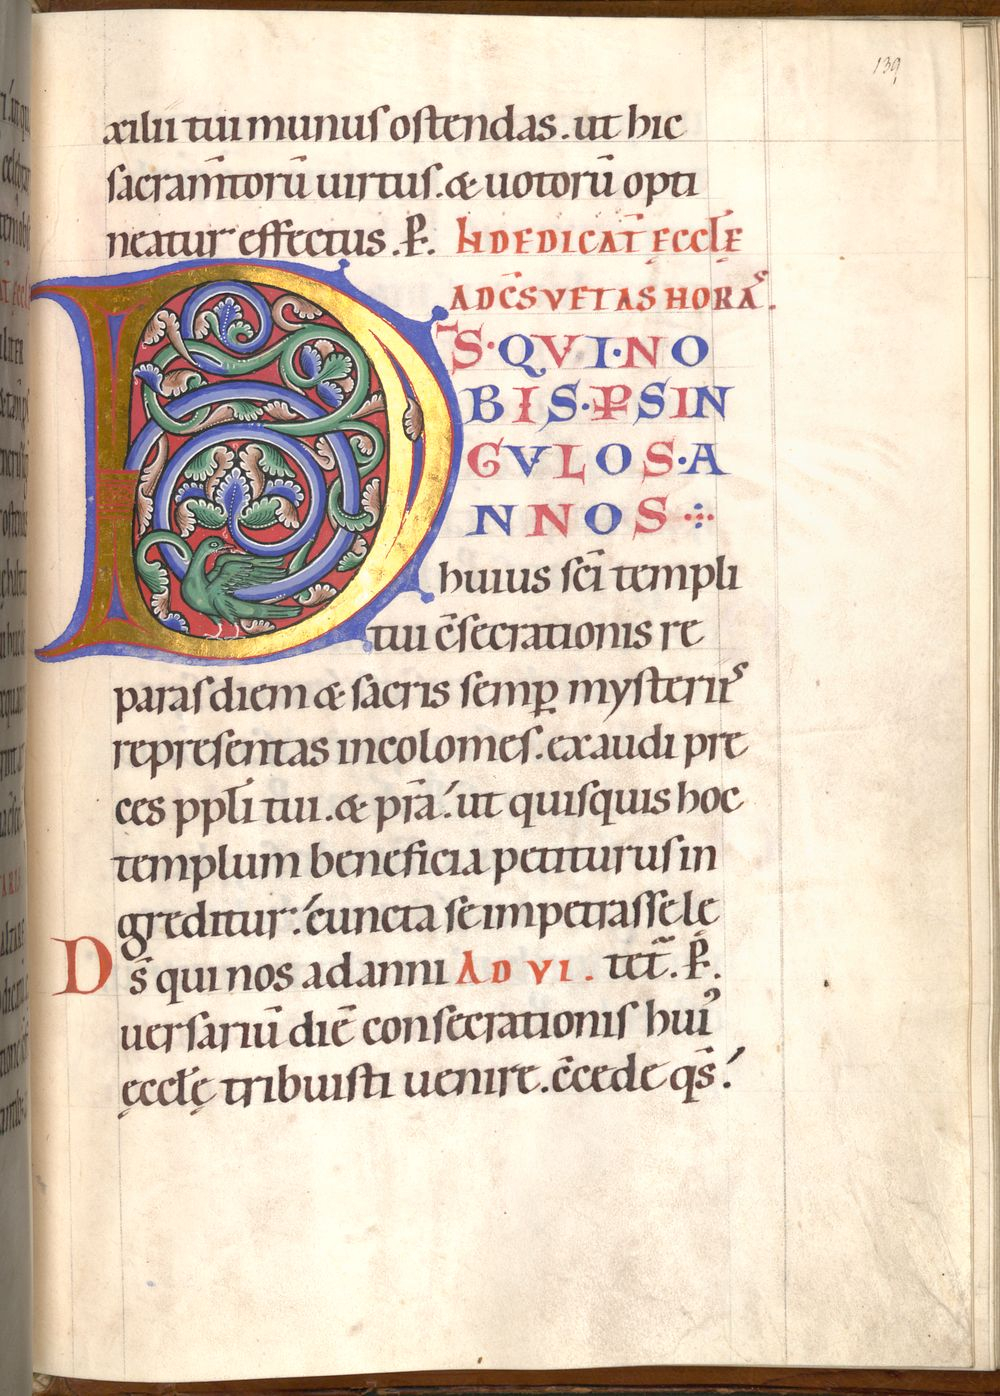 139
xilii tui munus ostendas. ut hic
sacram̄torū uirtus. & uotorū opti
neatur effectus. P̄. IN DEDICAT̄ ĘCCLĘ̄
AD C̄SVETAS HORAS.
D S̄·QVI·NO
BIS·P̄ SIN
GVLOS·A
NNOS
huius sc̄i templi
tui c̄secrationis re
paras diem & sacris semꝑ mysteriis
representas incolomes. exaudi pre
ces ppl̄i tui. & p̄ra. ut quisquis hoc
templum beneficia petiturus in
greditur: cuncta se impetrasse lę
D s̄ qui nos ad anni AD VI. tet̄. P̄.
uersariū diē consecrationis huiꝰ
ęccl̄ę tribuisti uenire. c̄cede qs̄.